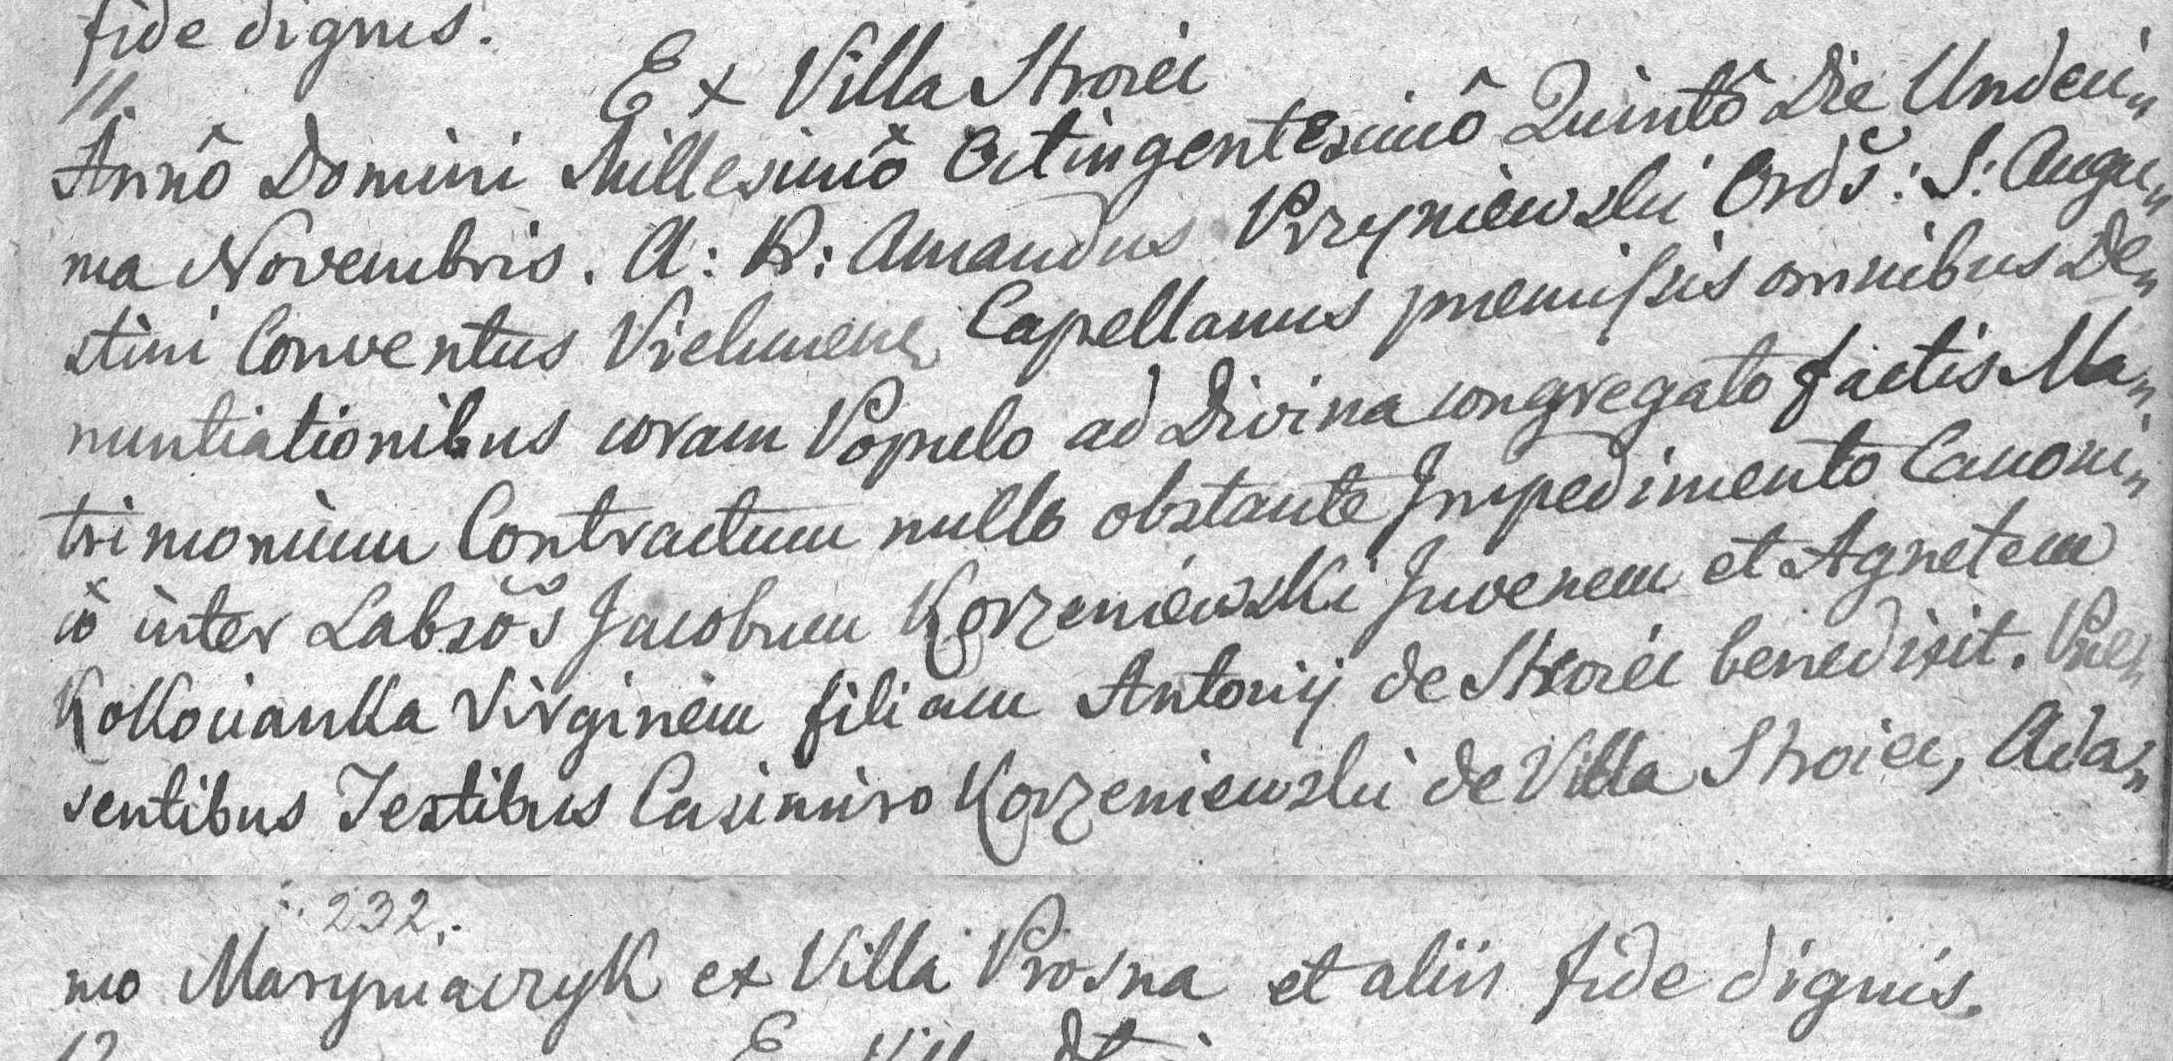 fide dignis.
11. Ex Villa Stroiec
Annô Domini Millesimô Octingentesimô Quintô Die Undeci„
ma Novembris. A: R: Amandus Przyniewski Ordš: S: Augu„
stini Conventus Vielunen Capellanus premissis omnibus De„
nuntiationibus coram Populo ad Divina congregato factis Ma„
trimonium Contractum nullo obstante Impedimento Canoni„
cô inter Labsõs Jacobum Korzeniewski Juvenem et Agnetem
Kokocianka Virginem filiam Antonij de Stroiec benedixit. Præ„
sentibus Testibus Casimiro Korzeniewski de Villa Stroiec, Ada„
232.
mo Maryniaczyk ex Villa Prosna et aliis fide dignis.
12